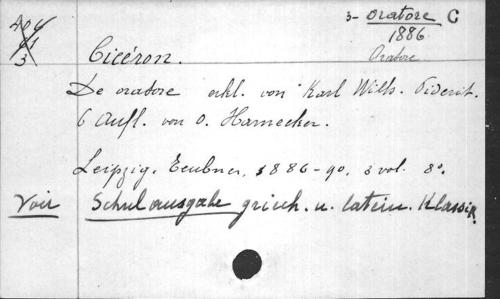 404
61
3
3- oratore C
1886
Oratore
Cicéron.
De oratore erkl. von Karl Wilh. Piderit.
6 Aufl. von O. Harnecker.
Leipzig. Teubner, 1886-90. 3 vol. 8°.
Voir Schulausgabe griech. u. latein. Klassik.